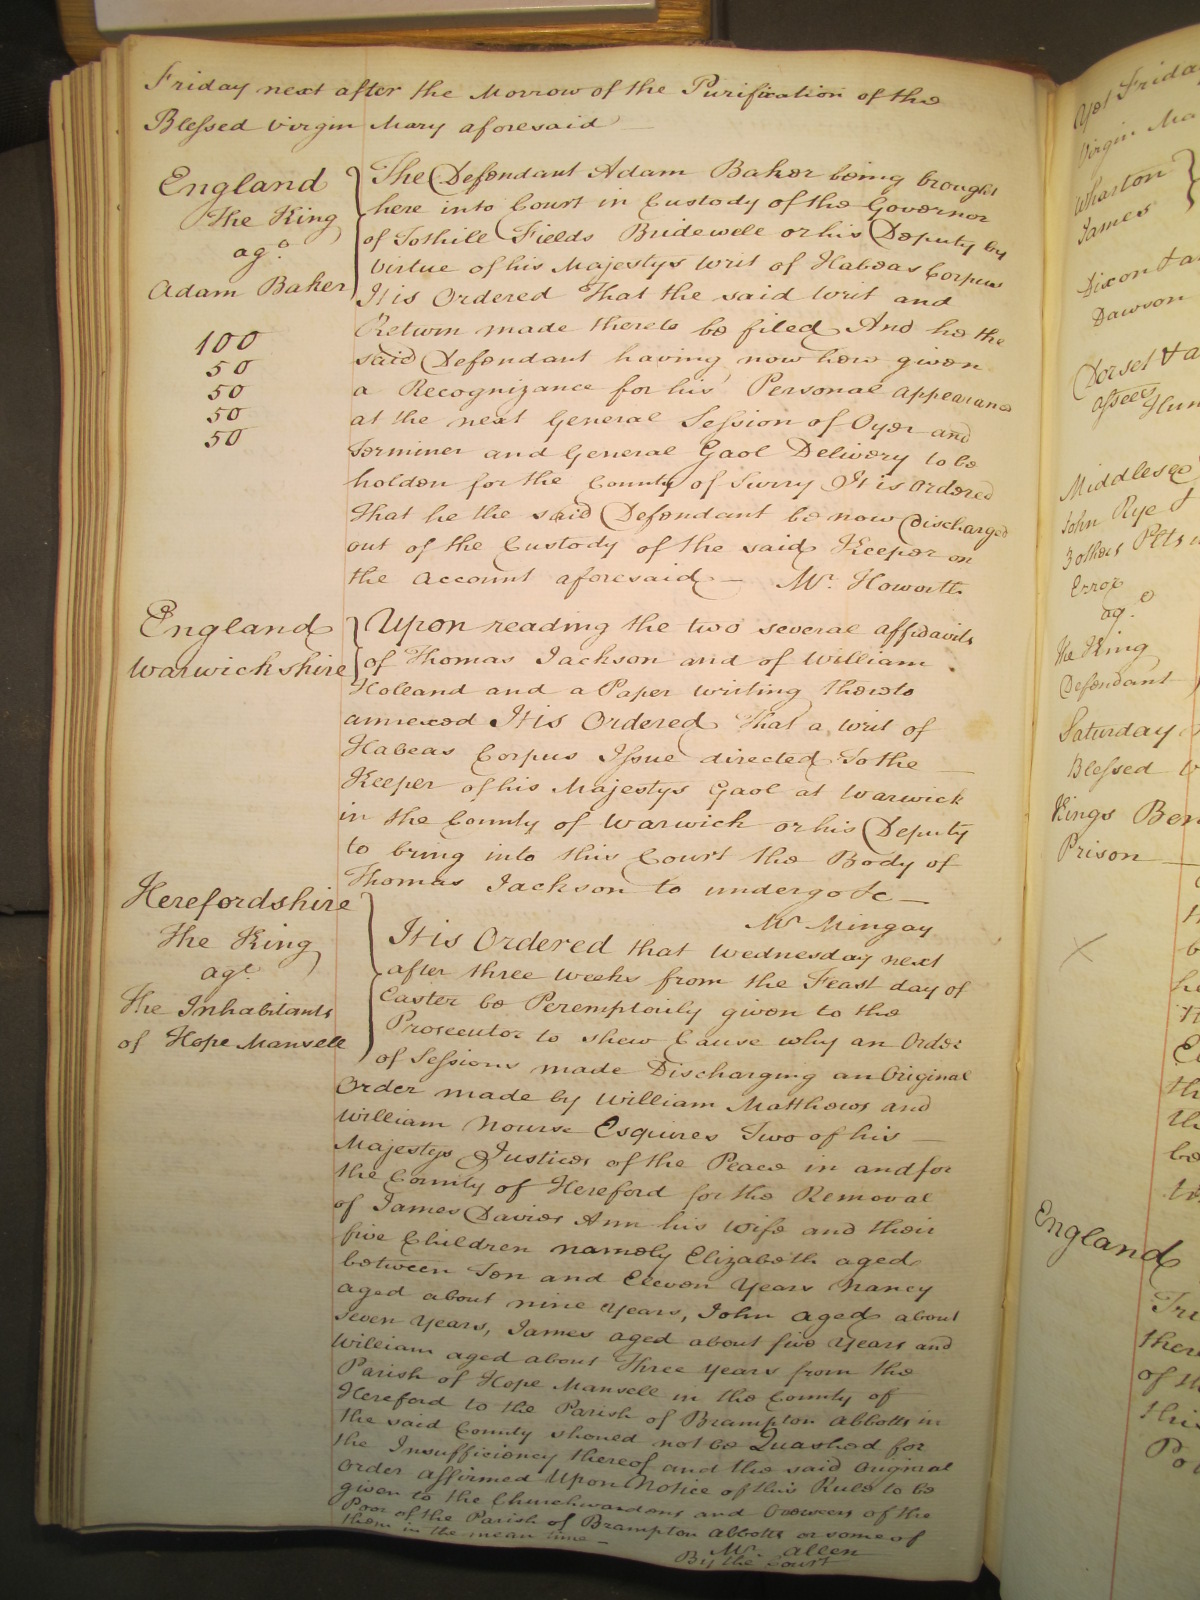 Friday next after the Morrow of the Purification of the
Blessed Virgin Mary aforesaid
England
The King
agt
Adam Baker
100
50
50
50
50
The Defendant Adam Baker being brought
here into Court in Custody of the Governor
of Tothill Fields Bridewell or his Deputy by
Virtue of his Majestys Writ of Habeas Corpus
It is Ordered That the said Writ and
Return made thereto be filed And he the
said Defendant having now here given
a Recognizance for his Personal appearance
at the next General Session of Oyer and
Terminer and General Gaol Delivery to be
holden for the County of Surry It is Ordered
That he the said Defendant be now Discharged
out of the Custody of the said Keeper on
the account aforesaid — Mr. Howorth
England
Warwickshire
Upon reading the two several affidavits
of Thomas Jackson and of William
Holland and a Paper writing thereto
annexed It is Ordered That a Writ of
Habeas Corpus Issue directed To the
Keeper of his Majestys Gaol at Warwick
in the County of Warwick or his Deputy
to bring into this Court the Body of
Thomas Jackson to undergo &c —
Mr Mingay
Herefordshire
The King
agt.
The Inhabitants
of Hope Mansell
It is Ordered that Wednesday next
after three Weeks from the Feast day of
Easter be Peremptorily given to the
Prosecutor to shew Cause why an Order
of Sessions made Discharging an Original
Order made by William Matthews and
William Nourse Esquires Two of his —
Majestys Justices of the Peace in and for
the County of Hereford for the Removal
of James Davies Ann his Wife and their
five Children namely Elizabeth aged
between Ten and Eleven Years Nancy
aged about nine Years, John aged about
Seven Years, James aged about five Years and
William aged about Three Years from the
Parish of Hope Mansell in the County of
Hereford to the Parish of Brampton Abbotts in
the said County should not be Quashed for
the Insufficiency thereof and the said Original
Order affirmed Upon Notice of this Rule to be
given to the Churchwardens and Overseers of the
Poor of the Parish of Brampton Abbotts or some of
them in the mean time —
Mr. Allen
By the Court
Friday
Virgin Ma
Wharton
James
Dixon & an
Dawson
Dorset & a
Middlesex
John Rye &
3 others Plts
Error
agt
The King
Defendant
Saturday
Blessed
Kings Ben
Prison
England